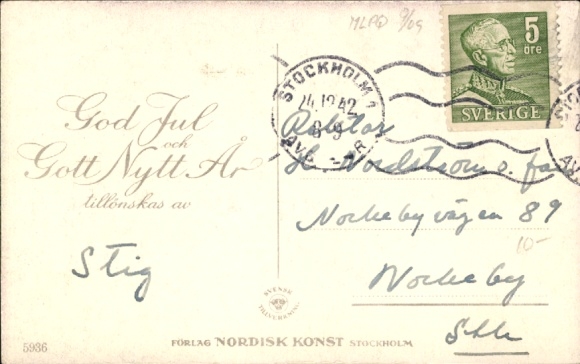 MLPD 9/09
5
öre
SVERIGE
STOCKHOLM 1
24.12.42
8-9
AVG
God Jul
och
Gott Nytt År
tillönskas av
Stig
H. Nordström o. fam
Nockebyvägen 89
10-
Nockeby
Sthlm
SVENSK
TILLVERKNING
5936
FÖRLAG NORDISK KONST STOCKHOLM